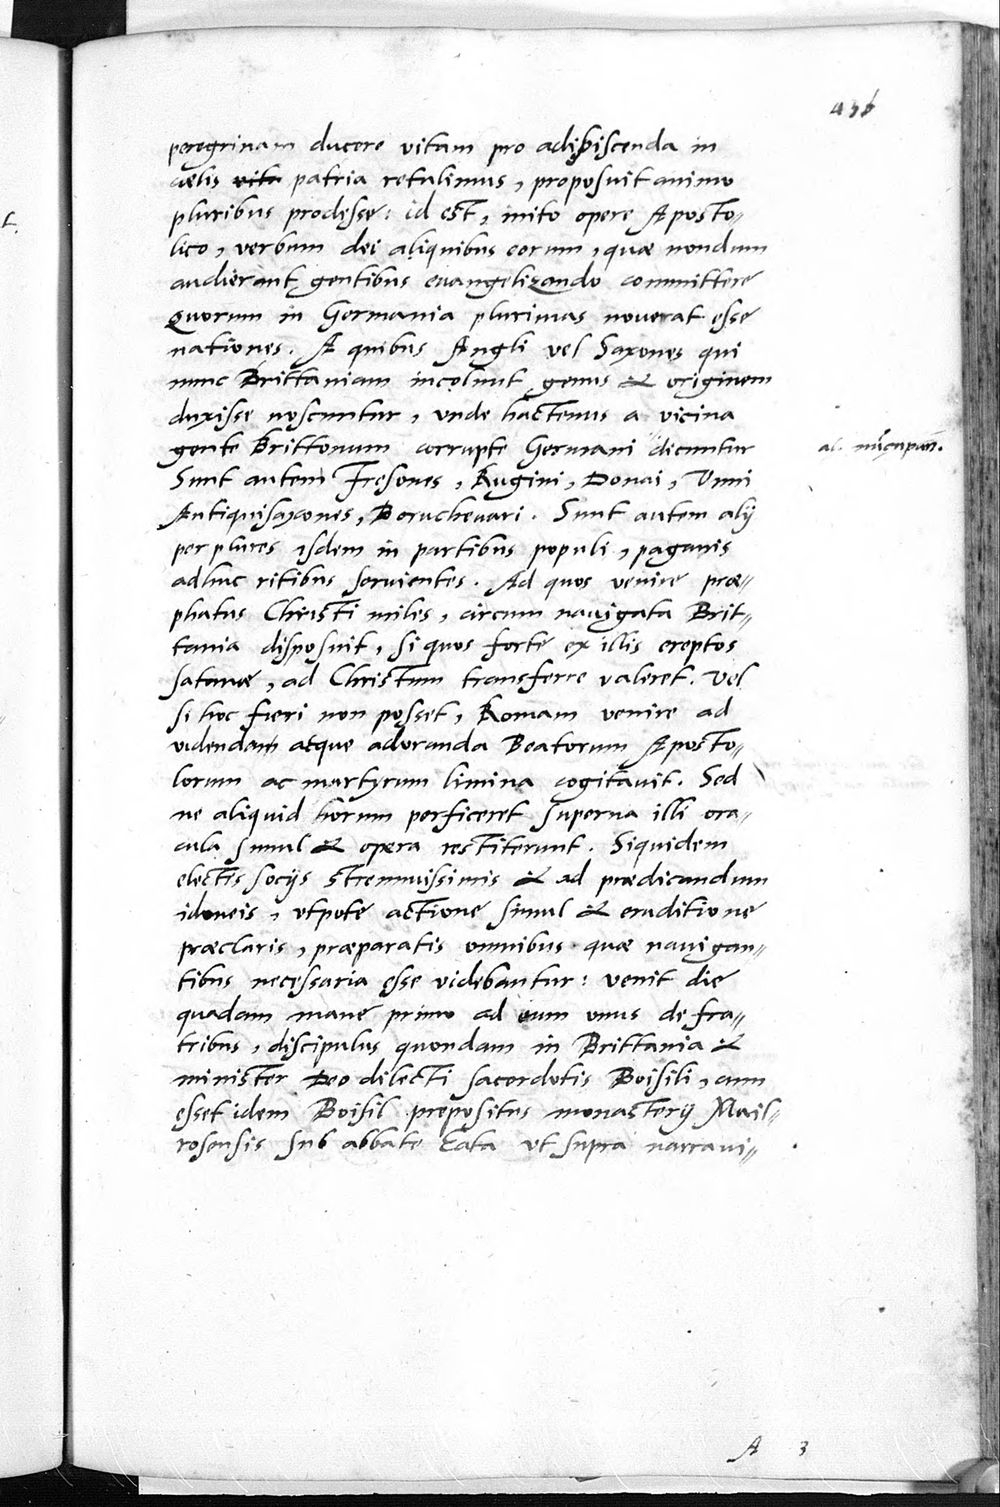 peregrinam ducere vitam pro adipiscenda in
cælis vita patria retulimus, proposuit animo
pluribus prodesse: id est, inito opere Aposto„
lico, verbum dei aliquibus eorum, quæ nondum
audierant gentibus euangelizando committere
Quorum in Germania plurimas nouerat esse
nationes. A quibus Angli vel Saxones qui
nunc Brittaniam incolunt genus & originem
duxisse noscuntur, vnde hactenus a vicina
gente Brittonum corrupte Germani dicuntur
al. nūcupan̄.
Sunt autem Fresones, Rugini, Donai, Vnni
Antiquisaxones, Boruchevari. Sunt autem alij
per plures isdem in partibus populi, paganis
adhuc ritibus seruientes. Ad quos venire præ„
phatus Christi miles, circum nauigata Brit„
tania disposuit, si quos forte ex illis ereptos
satanæ, ad Christum transferre valeret. Vel
si hoc fieri non posset, Romam venire ad
videndam atque adoranda Beatorum Aposto„
lorum ac martyrum limina cogitauit. Sed
ne aliquid horum perficeret superna illi ora„
cula simul & opera restiterunt. Siquidem
electis socijs strennuissimis & ad prædicandum
idoneis, vtpote actione simul & eruditione
præclaris, præparatis omnibus quæ nauigan„
tibus necessaria esse videbantur: venit die
quadam mane primo ad eum vnus de fra„
tribus, discipulus quondam in Brittania &
minister Deo dilecti sacerdotis Boisili, cum
esset idem Boisil prepositus monasterij Mail„
rosensis sub abbate Eata vt supra narraui„
A 3